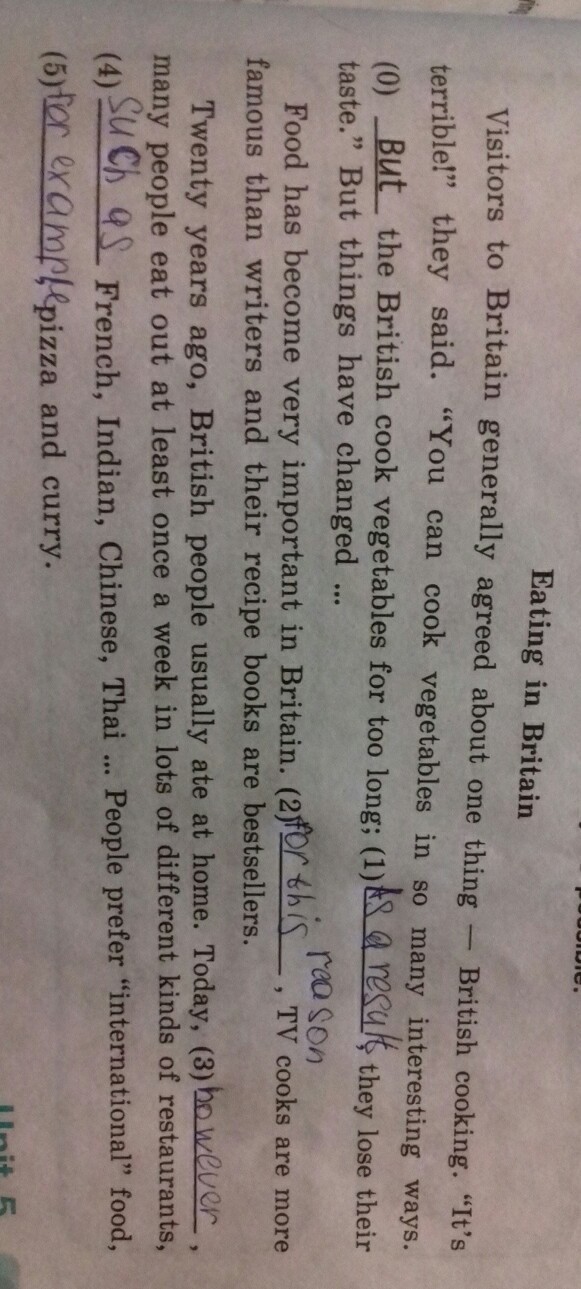 Eating in Britain
Visitors to Britain generally agreed about one thing — British cooking. “It’s
terrible!” they said. “You can cook vegetables in so many interesting ways.
(0) But the British cook vegetables for too long; (1) As a result, they lose their
taste.” But things have changed ...
reason
Food has become very important in Britain. (2) for this , TV cooks are more
famous than writers and their recipe books are bestsellers.
Twenty years ago, British people usually ate at home. Today, (3) however ,
many people eat out at least once a week in lots of different kinds of restaurants,
(4) such as French, Indian, Chinese, Thai ... People prefer “international” food,
(5) for example, pizza and curry.
Unit 5